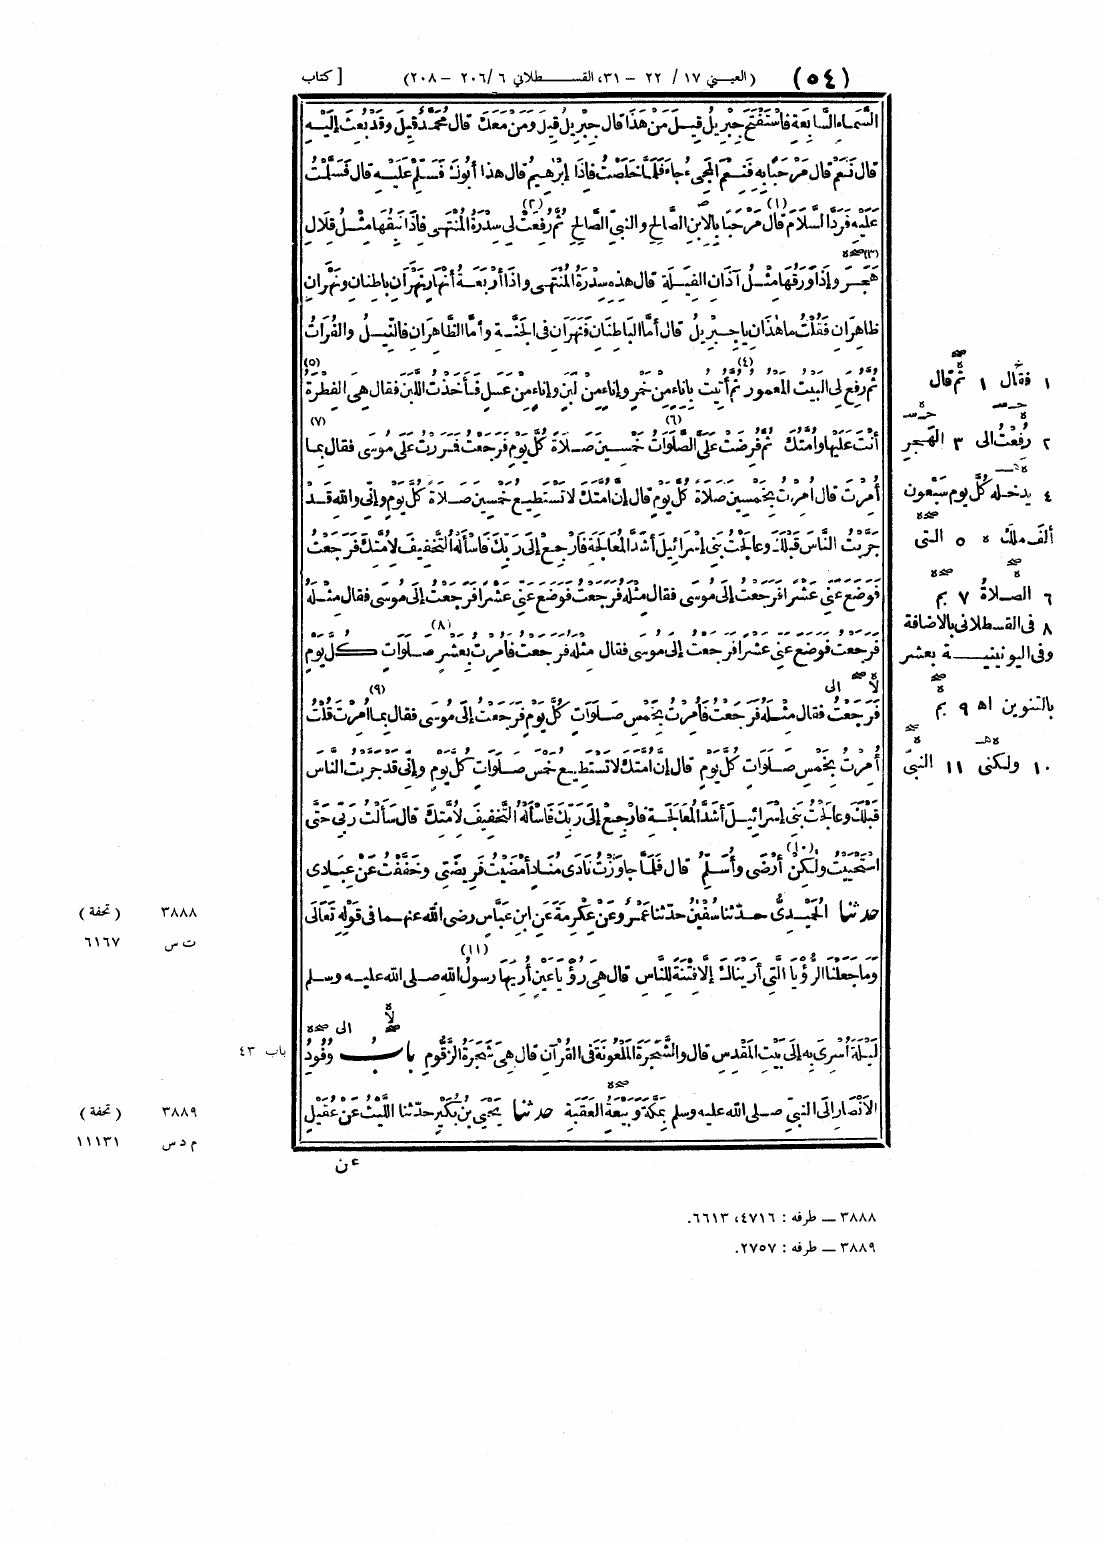 (٥٤) (العيني ١٧/ ٢٢ – ٣١، القسطلاني ٦/ ٢٠٦ – ٢٠٨) [كتاب
السَّماءِ السَّابِعَةِ فَاسْتَفْتَحَ جِبْرِيلُ قِيلَ مَنْ هَذَا قال جِبْرِيلُ قِيلَ ومَنْ مَعَكَ قال مُحَمَّدٌ قِيلَ وقَدْ بُعِثَ إلَيْهِ
قال نَعَمْ قال مَرْحَبًا بِهِ فَنِعْمَ المَجِىءُ جاءَ فَلَمَّا خَلَصْتُ فإذَا إبْرٰهِيمُ قال هذا أَبُوكَ فَسَلِّمْ عَلَيْهِ قال فَسَلَّمْتُ
عَلَيْهِ فَرَدَّ السَّلَامَ (١) قال مَرْحَبًا بالابنِ الصَّالِحِ والنبىِّ الصَّالِحِ ثُمَّ رُفِعَتْ (٢) لِى سِدْرَةُ المُنْتَهَى فَإذَا نَبِقُهَا مِثْلُ قِلَالِ
هَجَرَ (٣) وإذَا وَرَقُهَا مِثْلُ آذَانِ الفِيَلَةِ قال هذه سِدْرَةُ المُنْتَهَى واذَا أَرْبَعَةُ أَنْهَارٍ نَهْرَانِ باطِنَانِ ونَهْرَانِ
ظاهِرَانِ فَقُلْتُ ما هٰذَانِ يا جِبْرِيلُ قال أمَّا البَاطِنَانِ فَنَهَرَانِ فى الجَنَّةِ وأمَّا الظَّاهِرَانِ فالنِّيلُ والفُرَاتُ
ثُمَّ رُفِعَ لِى البَيْتُ المَعْمُورُ (٤) ثُمَّ أُتِيتُ بِاناءٍ مِنْ خَمْرٍ وإناءٍ مِنْ لَبَنٍ وإناءٍ مِنْ عَسَلٍ فَأَخَذْتُ اللبَنَ فقال هِىَ الفِطْرَةُ (٥)
أنْتَ عَلَيْهَا وأُمَّتُكَ ثُمَّ فُرِضَتْ عَلَىَّ الصَّلَوَاتُ (٦) خَمْسِينَ صَلَاةً كُلَّ يَوْمٍ فَرَجَعْتُ فَمَرَرْتُ عَلَى مُوسَى فقال بِمَا (٧)
أُمِرْتَ قال أُمِرْتُ بِخَمْسِينَ صَلَاةً كُلَّ يَوْمٍ قال إنَّ أُمَّتَكَ لا تَسْتَطِيعُ خَمْسِينَ صَلَاةً كُلَّ يَوْمٍ وإنِّى والله قَدْ
جَرَّبْتُ النَّاسَ قَبْلَكَ وعالَجْتُ بَنِى إسْرَائِيلَ أشَدَّ المُعَالَجَةِ فَارْجِعْ إلَى رَبِّكَ فَاسْأَلْهُ التَّخْفِيفَ لأُمَّتِكَ فَرَجَعْتُ
فَوَضَعَ عَنِّى عَشْرًا فَرَجَعْتُ إلَى مُوسَى فقال مِثْلَهُ فَرَجَعْتُ فَوَضَعَ عَنِّى عَشْرًا فَرَجَعْتُ إلَى مُوسَى فقال مِثْلَهُ
فَرَجَعْتُ فَوَضَعَ عَنِّى عَشْرًا فَرَجَعْتُ إلَى مُوسَى فقال مِثْلَهُ فَرَجَعْتُ فَأُمِرْتُ بِعَشْرِ (٨) صَلَوَاتٍ كُلَّ يَوْمٍ
فَرَجَعْتُ فقال مِثْلَهُ فَرَجَعْتُ فَأُمِرْتُ بِخَمْسِ صَلَوَاتٍ كُلَّ يَوْمٍ فَرَجَعْتُ إلَى مُوسَى فقال بِمَا (٩) أُمِرْتَ قُلْتُ
أُمِرْتُ بِخَمْسِ صَلَوَاتٍ كُلَّ يَوْمٍ قال إنَّ أُمَّتَكَ لا تَسْتَطِيعُ خَمْسَ صَلَوَاتٍ كُلَّ يَوْمٍ وإنِّى قَدْ جَرَّبْتُ النَّاسَ
قَبْلَكَ وعالَجْتُ بَنِى إسْرَائِيلَ أشَدَّ المُعَالَجَةِ فارْجِعْ إلَى رَبِّكَ فَاسْأَلْهُ التَّخْفِيفَ لأُمَّتِكَ قال سَأَلْتُ رَبِّى حَتَّى
اسْتَحْيَيْتُ ولَكِنْ (١٠) أَرْضَى وأُسَلِّمُ قال فَلَمَّا جاوَزْتُ نَادَى مُنَادٍ أمْضَيْتُ فَرِيضَتِى وخَفَّفْتُ عَنْ عِبَادِى
حدثنا الحُمَيْدِىُّ حدّثنا سُفْيٰنُ حدّثنا عَمْرٌو عَنْ عِكْرِمَةَ عَنِ ابنِ عَبَّاسٍ رضى الله عنهما فى قَوْلِهِ تَعَالَى
وما جَعَلْنَا الرُّؤْيَا الَّتِى أَرَيْنَاكَ إلَّا فِتْنَةً لِلنَّاسِ قال هِىَ رُؤْيَا عَيْنٍ أُرِيَهَا رسولُ الله (١١) صلى الله عليه وسلم
لَيْلَةَ أُسْرِىَ بِهِ إلَى بَيْتِ المَقْدِسِ قال والشَّجَرَةَ المَلْعُونَةَ فى القُرْآنِ قال هِىَ شَجَرَةُ الزَّقُّومِ باب وُفُودُ
الأنْصَارِ إلَى النبىِّ صلى الله عليه وسلم بِمَكَّةَ وبَيْعَةُ العَقَبَةِ حدثنا يَحْيَى بنُ بُكَيْرٍ حدّثنا اللَّيْثُ عَنْ عُقَيْلٍ
١ فقال ١ ثم قال
٢ رُفِعْتُ الى ٣ الهَجَرِ
٤ يدخله كُلَّ يومٍ سَبْعُونَ
ألفَ ملك ٥ التى
٦ الصلاةُ ٧ بم
٨ فى القسطلانى بالاضافة
وفى اليونينية بعشرٍ
بالتنوين اه ٩ بم
١٠ ولكنى ١١ النبىّ
٣٨٨٨ (تحفة)
ت س ٦١٦٧
باب ٤٣
٣٨٨٩ (تحفة)
م د س ١١١٣١
٣٨٨٨ ــ طرفه : ٤٧١٦، ٦٦١٣.
٣٨٨٩ ــ طرفه : ٢٧٥٧.